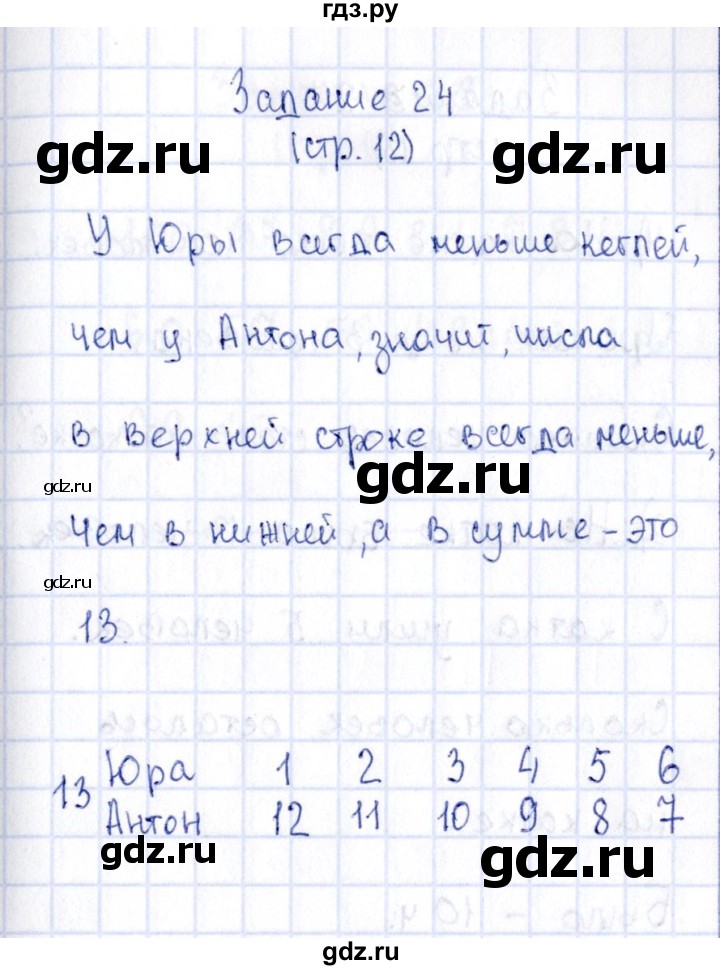 гдз.ру
Задание 24
(стр. 12)
gdz.ru gdz.ru
У Юры всегда меньше кеглей,
чем у Антона, значит, числа
в верхней строке всегда меньше,
gdz.ru gdz.ru
чем в нижней, а в сумме – это
gdz.ru
13.
13 Юра 1 2 3 4 5 6
Антон 12 11 10 9 8 7
gdz.ru gdz.ru
gdz.ru